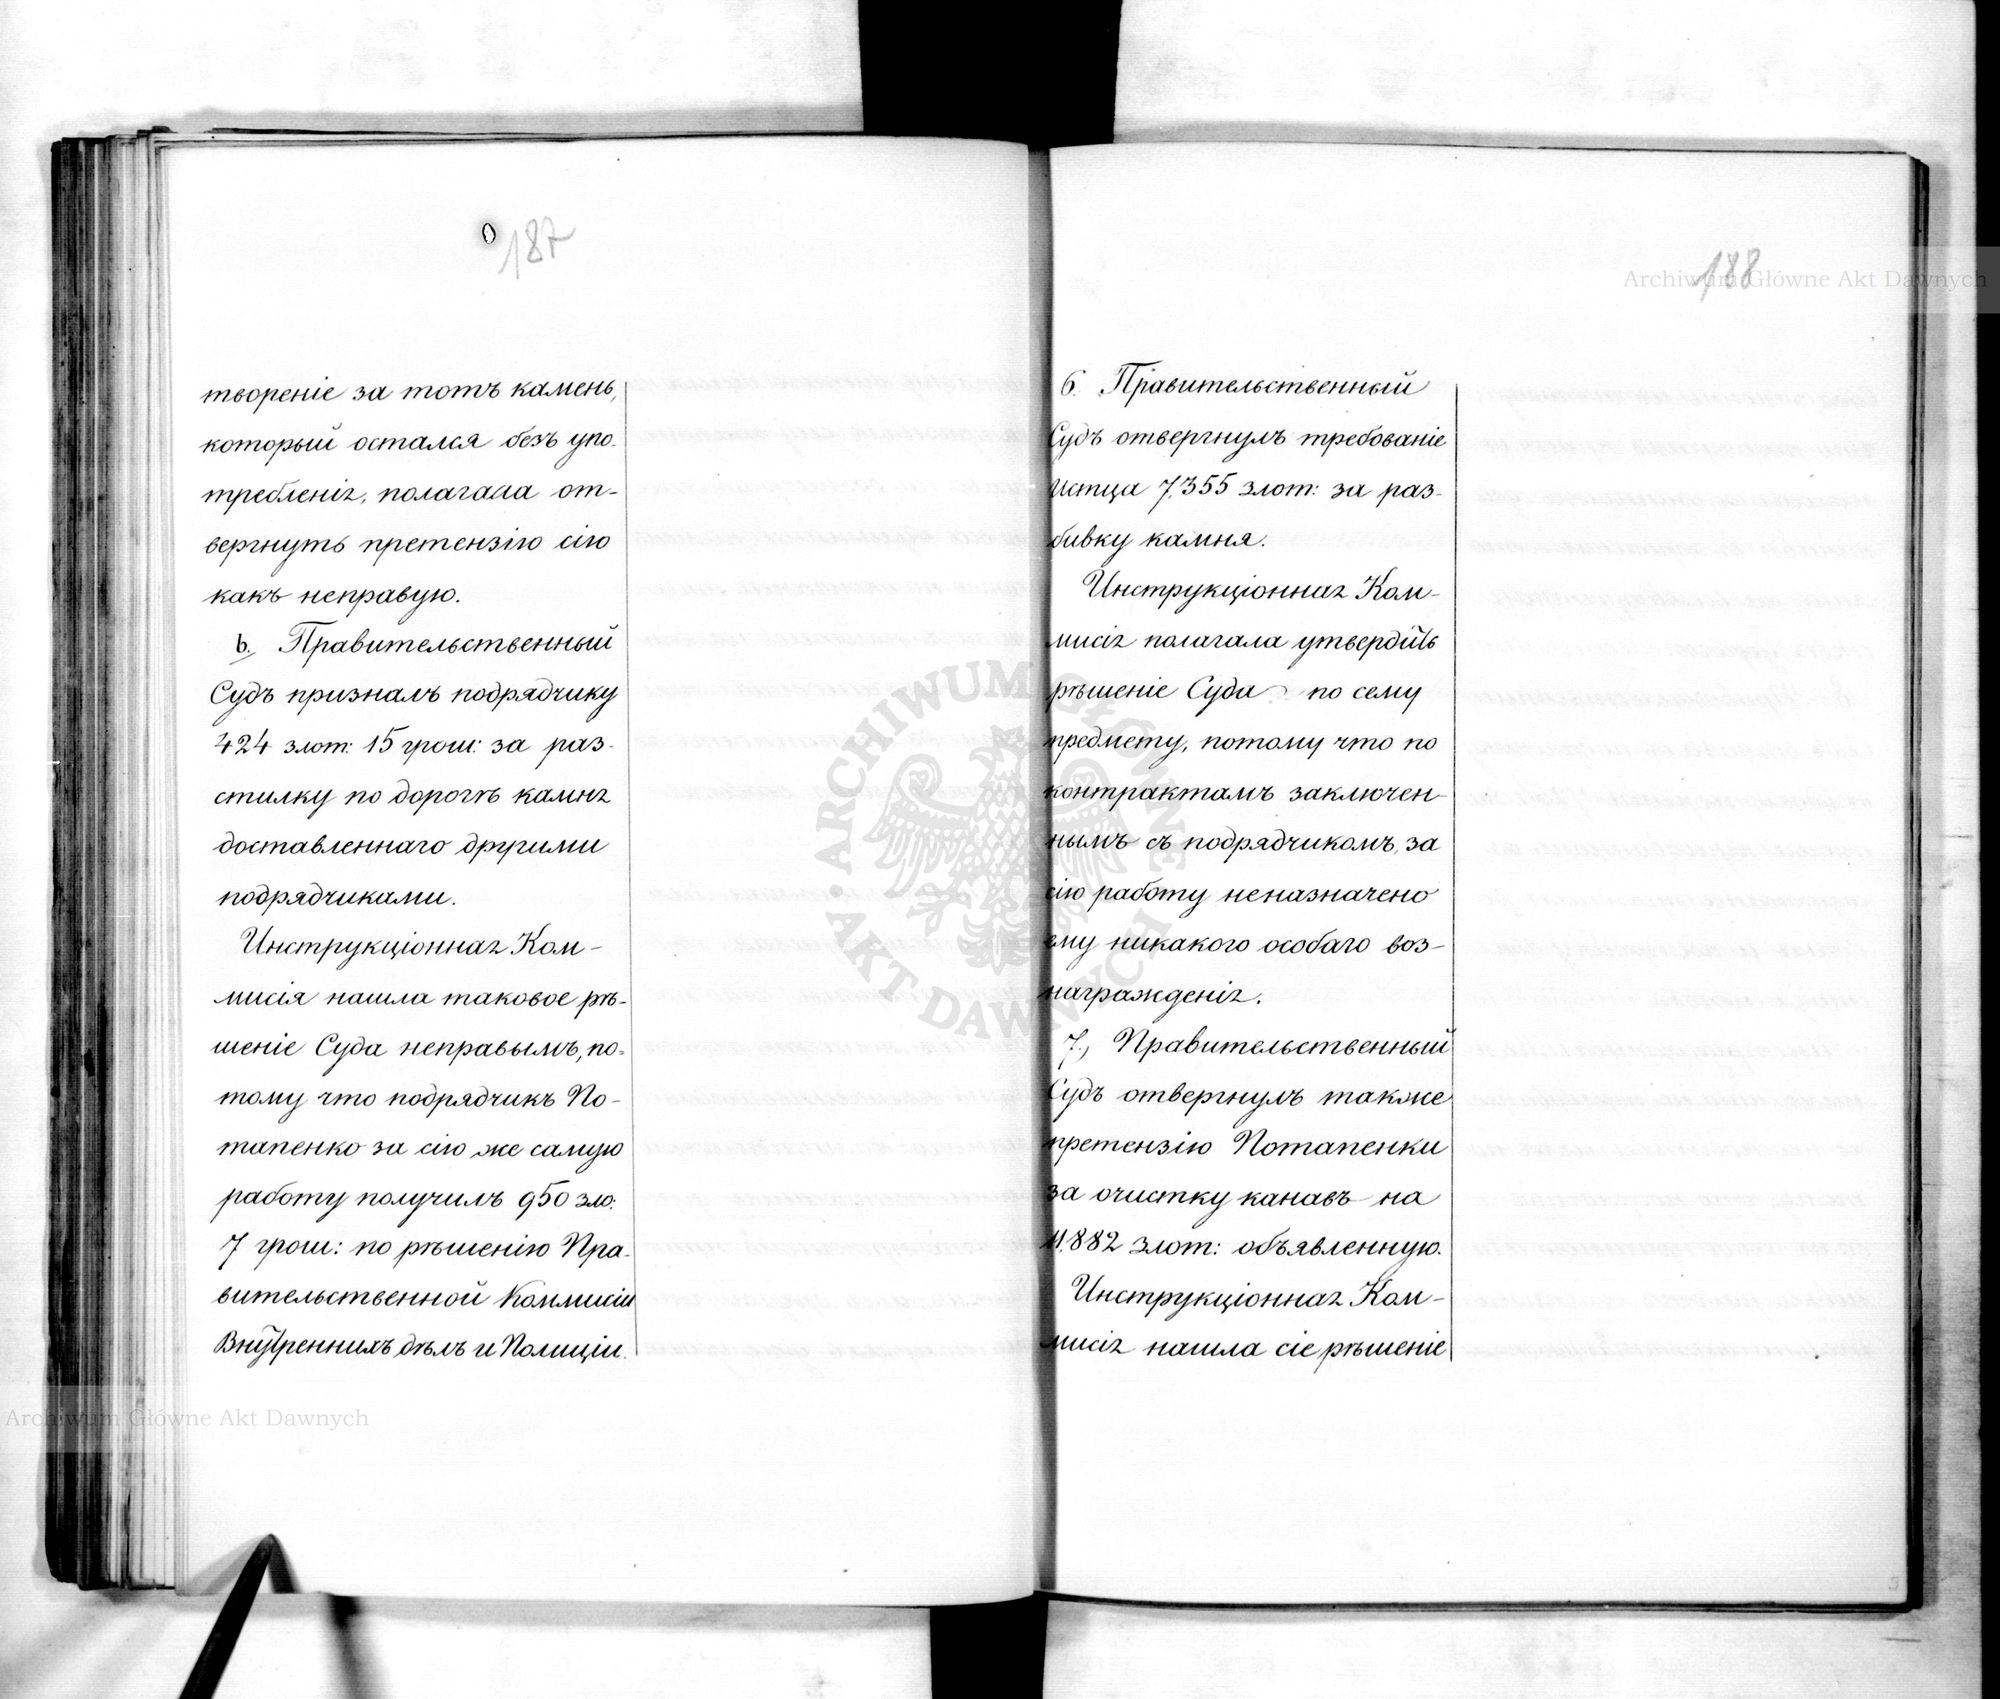 187
твореніе за тотъ камень,
который остался безъ упо-
требленія, полагала от-
вергнуть претензію сію
какъ неправую.
b. Правительственный
Судъ призналъ подрядчику
424 злот: 15 грош: за раз-
стилку по дорогѣ камня
доставленнаго другими
подрядчиками.
Инструкціонная Ком-
мисія нашла таковое рѣ-
шеніе Суда неправымъ, по-
тому что подрядчикъ По-
тапенко за сію же самую
работу получилъ 950 зло:
7 грош: по рѣшенію Пра-
вительственной Коммисіи
Внутреннихъ дѣлъ и Полиціи.
188
6. Правительственный
Судъ отвергнулъ требованіе
Истца 7,355 злот: за раз-
бивку камня.
Инструкціонная Ком-
мисія полагала утвердить
рѣшеніе Суда по сему
предмету, потому что по
контрактамъ заключен-
нымъ съ подрядчикомъ, за
сію работу неназначено
ему никакого особаго воз-
награжденія.
7., Правительственный
Судъ отвергнулъ также
претензію Потапенки
за очистку канавъ на
11,882 злот: объявленную.
Инструкціонная Ком-
мисія нашла сіе рѣшеніе
Archiwum Główne Akt Dawnych
ARCHIWUM GŁÓWNE AKT DAWNYCH
Archiwum Główne Akt Dawnych